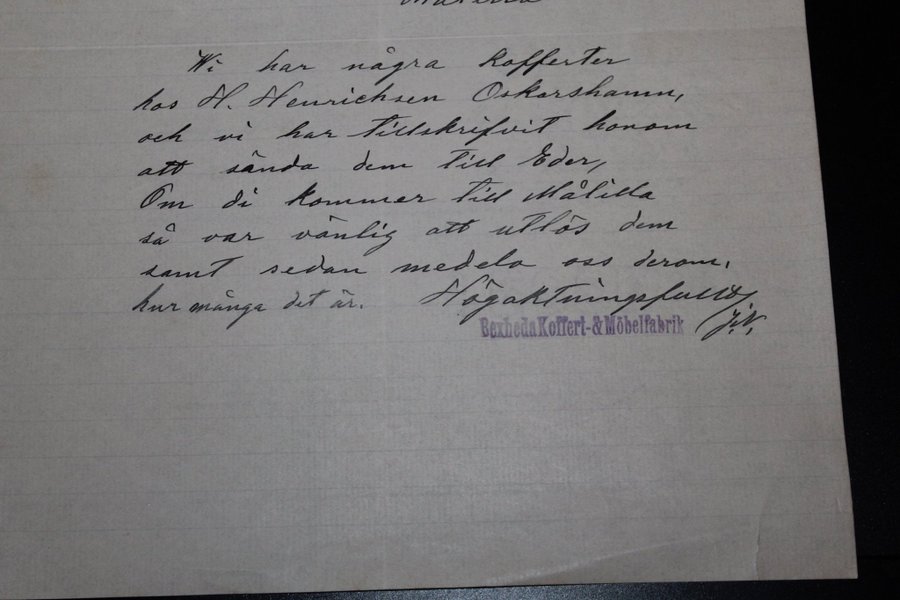 Wi har några kofferter
hos H. Henrichsen Oskarshamn,
och vi har tillskrifvit honom
att sända dem till Eder,
Om di kommer till Målilla
så var vänlig att utlös dem
samt sedan medela oss derom,
hur många det är. Högaktningsfullt
Bexheda Koffert- & Möbelfabrik